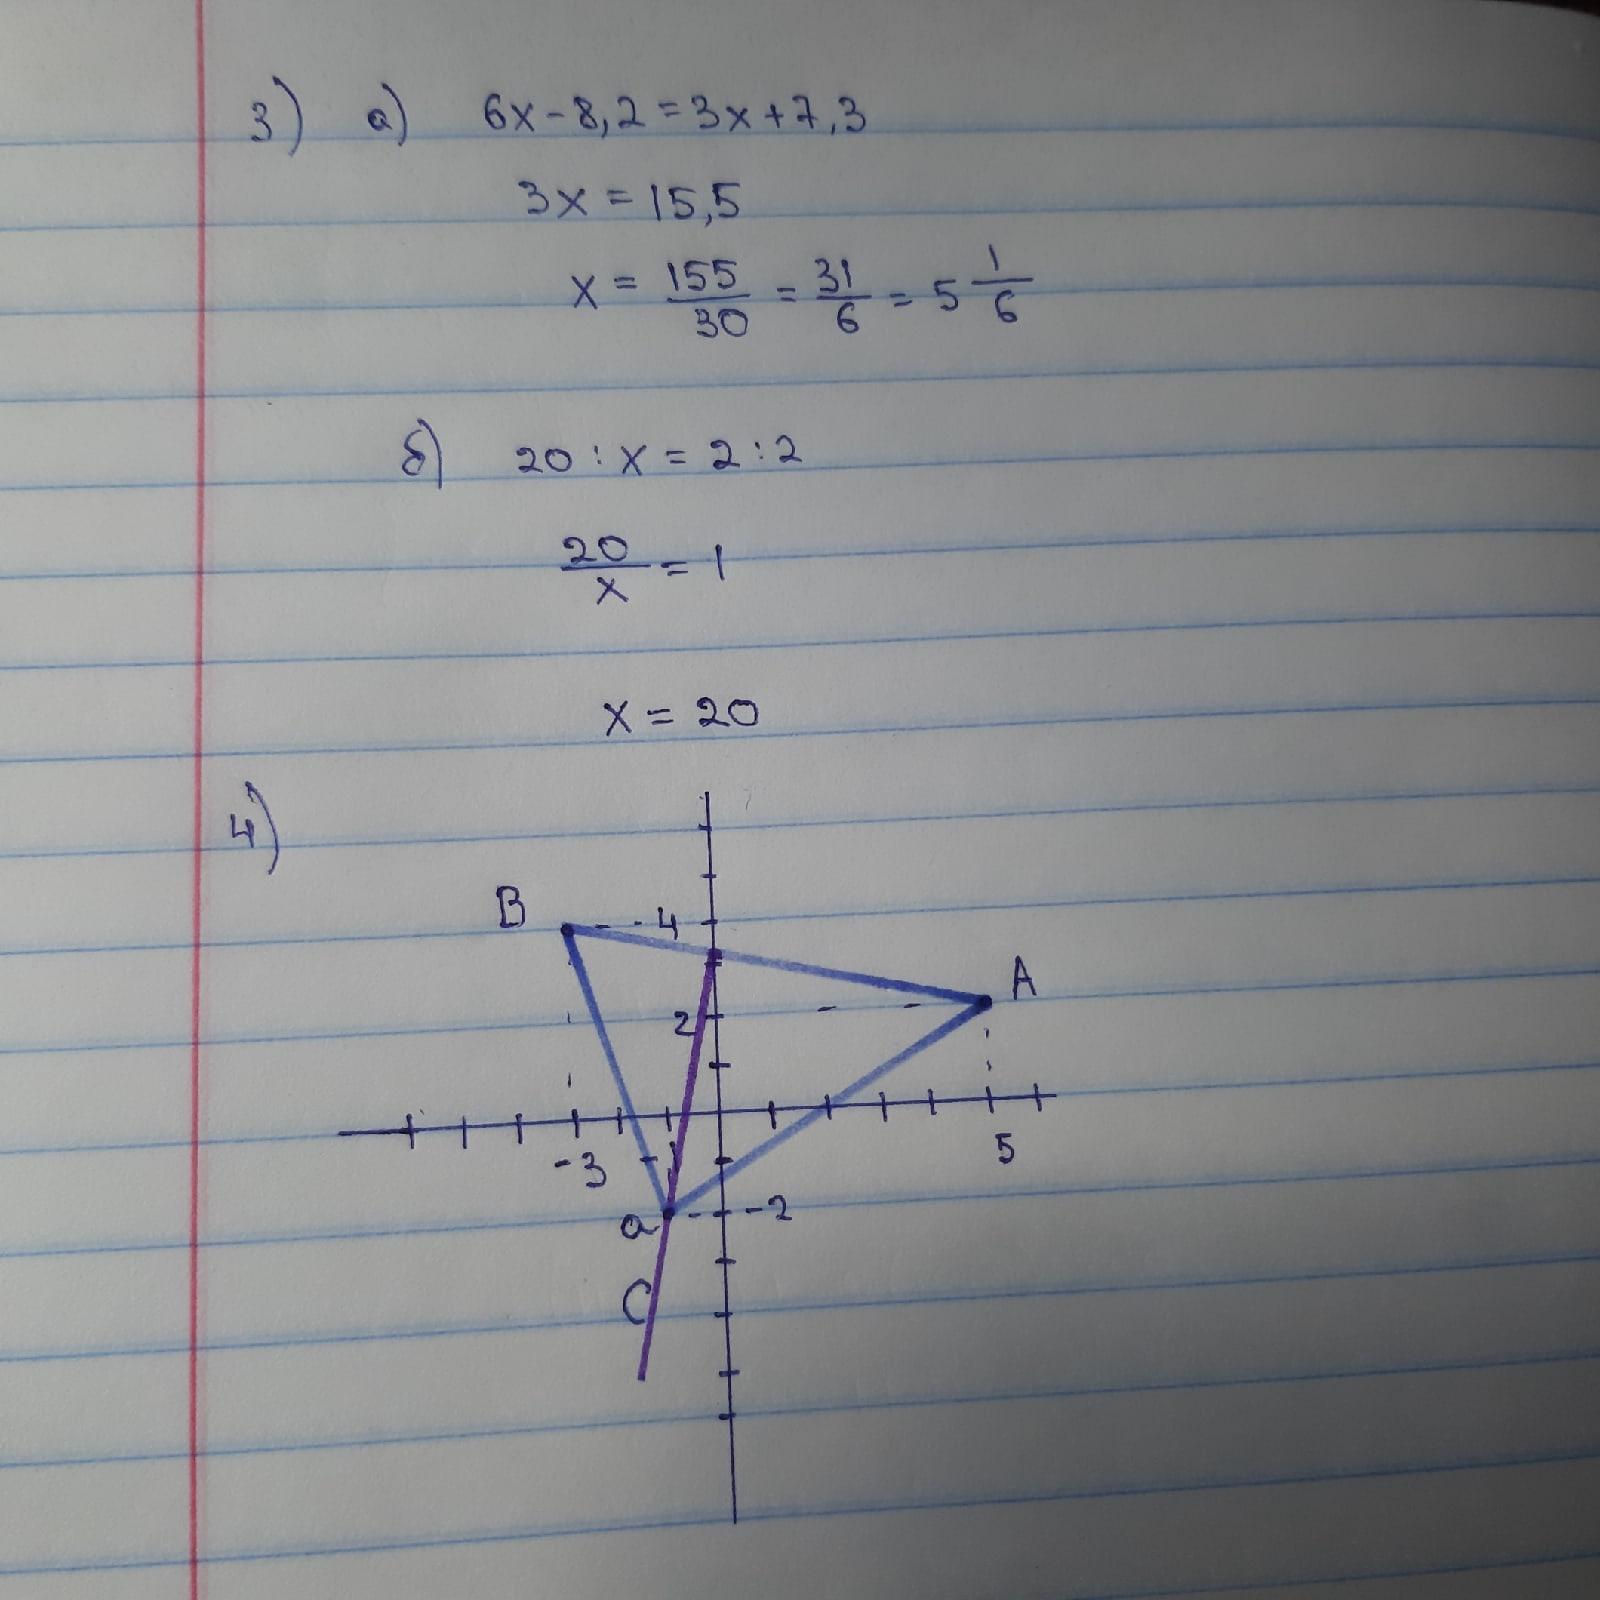 3) а) 6x-8,2=3x+7,3
3x=15,5
x = 155/30 = 31/6 = 5 1/6
б) 20 : x = 2 : 2
20/x = 1
x = 20
4)
B
-4
A
2
-3
-1
5
a
-2
C